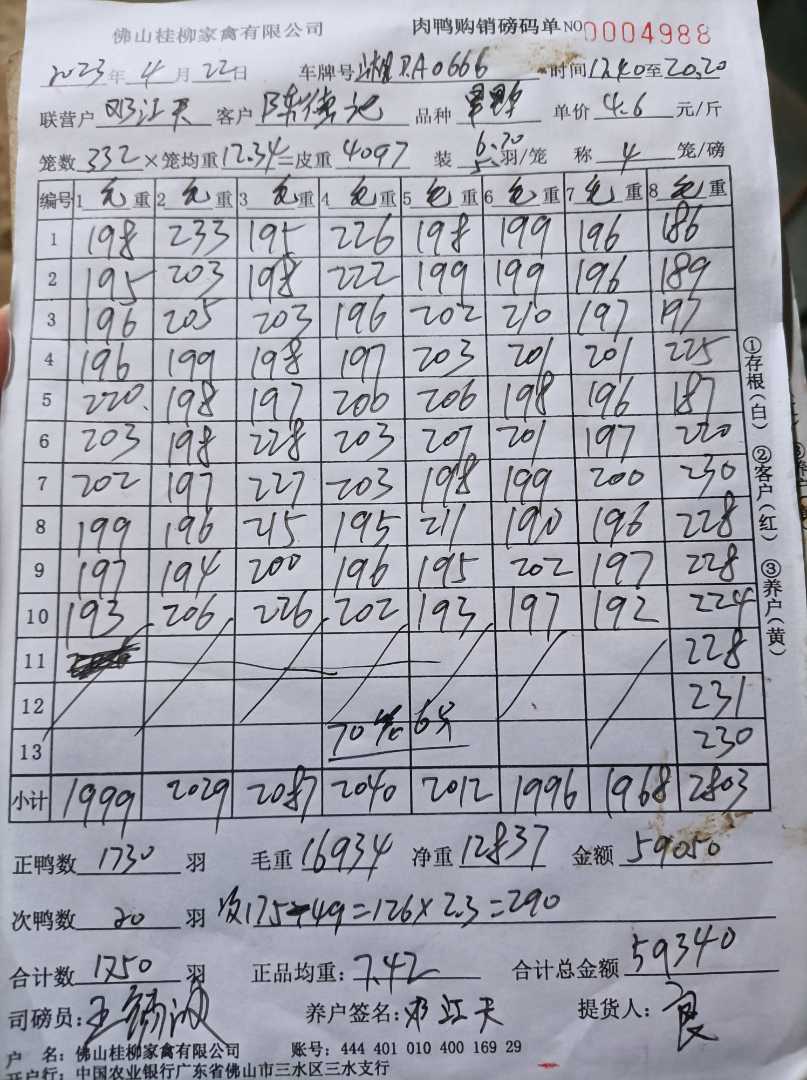 佛山桂柳家禽有限公司 肉鸭购销磅码单 NO 0004988
2023年4月22日 车牌号 A0666 时间17.40至20.20
联营户 邓江天 客户 陈 品种 单价 4.6 元/斤
笼数 332 ×笼均重 12.34 =皮重 4097 装 6.70 5. 羽/笼 称 4 笼/磅
编号 1 毛重 2 毛重 3 毛重 4 毛重 5 毛重 6 毛重 7 毛重 8 毛重
1 198 233 195 226 198 199 196 186
2 195 203 198 222 199 199 196 189
3 196 205 203 196 202 210 197 197
4 196 199 198 197 203 201 201 225
5 220 198 197 200 206 198 196 187
6 203 198 228 203 207 201 197 220
7 202 197 227 203 198 199 200 230
8 199 196 215 195 211 190 196 228
9 197 194 200 196 195 202 197 228
10 193 206 226 202 193 197 192 224
11 228
12 231
13 70 6只 230
小计 1999 2029 2087 2040 2012 1996 1968 2803
正鸭数 1730 羽 毛重 16934 净重 12837 金额 59050
次鸭数 20 羽 次175-49=126×2.3=290
合计数 1750 羽 正品均重: 7.42 合计总金额 59340
司磅员: 王 养户签名: 邓江天 提货人: 良
户 名: 佛山桂柳家禽有限公司 账号: 444 401 010 400 169 29
开户行: 中国农业银行广东省佛山市三水区三水支行
①存根(白) ②客户(红) ③养户(黄)